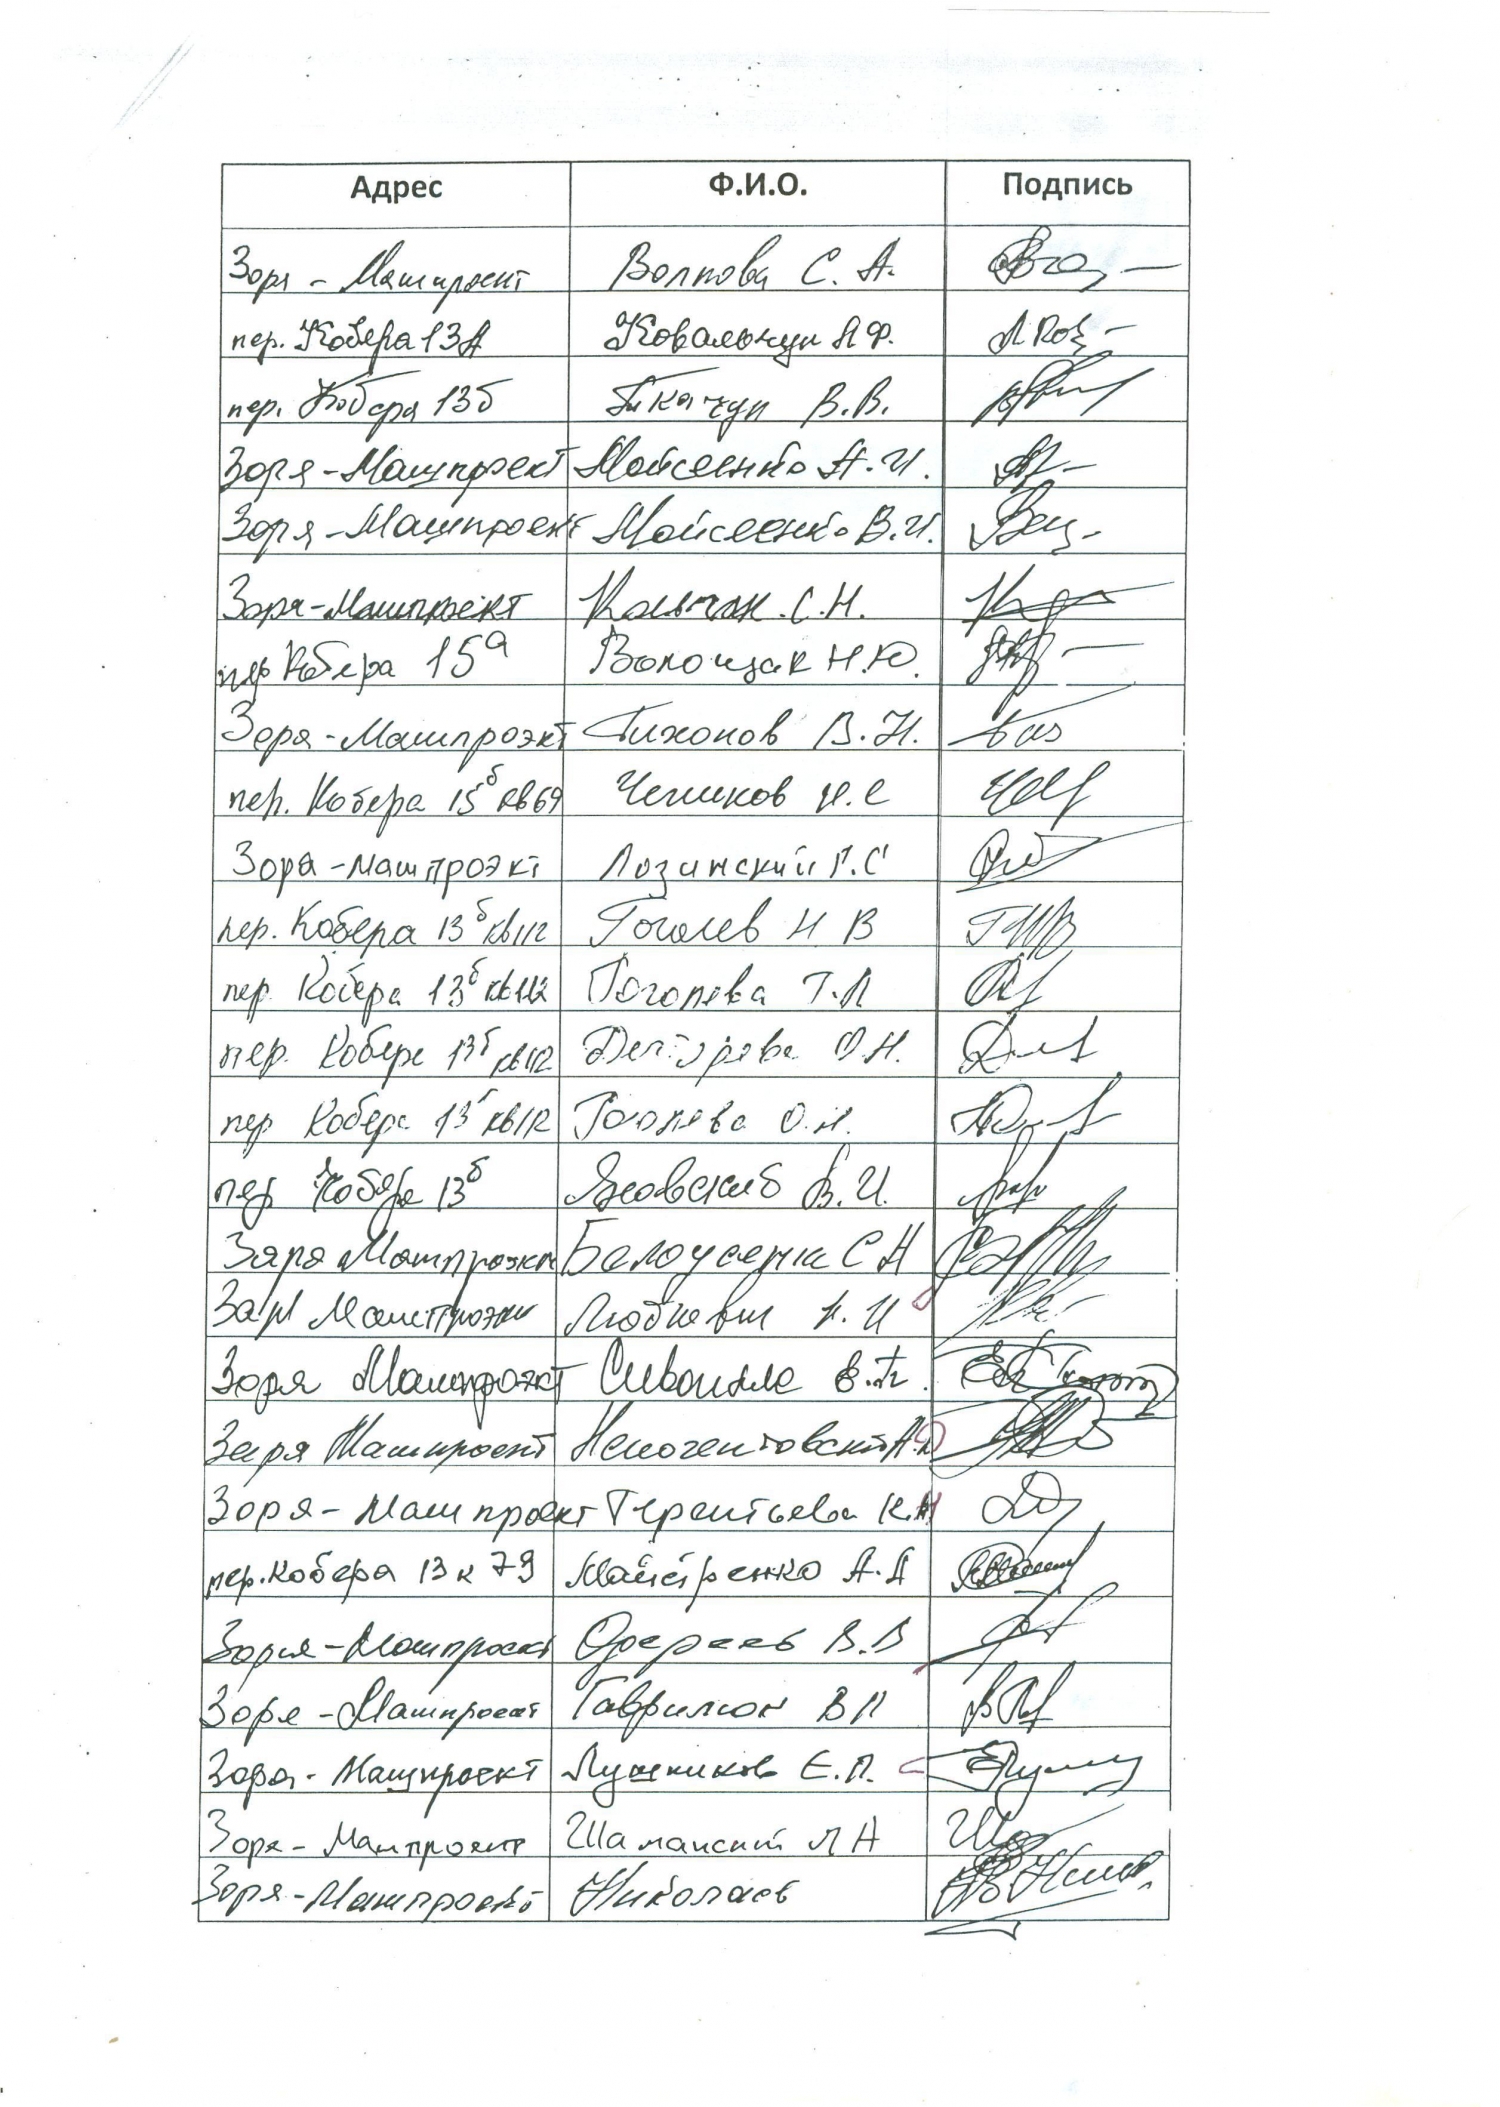 Адрес Ф.И.О. Подпись
Зоря - Машпроект Волкова С. А.
пер. Кобера 13А Ковальчук А Ф.
пер. Кобера 13б Ткачук В.В.
Зоря-Машпроект Мойсеенко А.И.
Зоря-Машпроект Мойсеенко В.И.
Зоря-Машпроект Колчак С.Н.
пер Кобера 15а Волощак Н.Ю.
Зоря-Машпроэкт Тихонов В.Н.
пер. Кобера 15б кв69 Чепиков И.С
Зоря-машпроэкт Лозинский Г.С
пер. Кобера 13б кв112 Гоголев Н В
пер. Кобера 13б кв112 Гоголева Т.Л
пер. Кобера 13б кв112 Дегтярева О.Н.
пер Кобера 13б кв112 Гоголева О.Н.
пер Кобера 13б Яновский В.И.
Заря Машпроэкт Белоусенко С Н
Заря Машпроэкт Н. И
Зоря Машпроэкт Е.
Заря Машпроект
Зоря-Машпроект Терентьева К.
пер. Кобера 13 к 79 Майстренко А.А
Зоря-Машпроект В.В
Зоря-Машпроект Гаврилюк В П
Зоря-Машпроект Лушников Е.П.
Зоря-Машпроект Шаманский Л А
Зоря-Машпроект Николаев